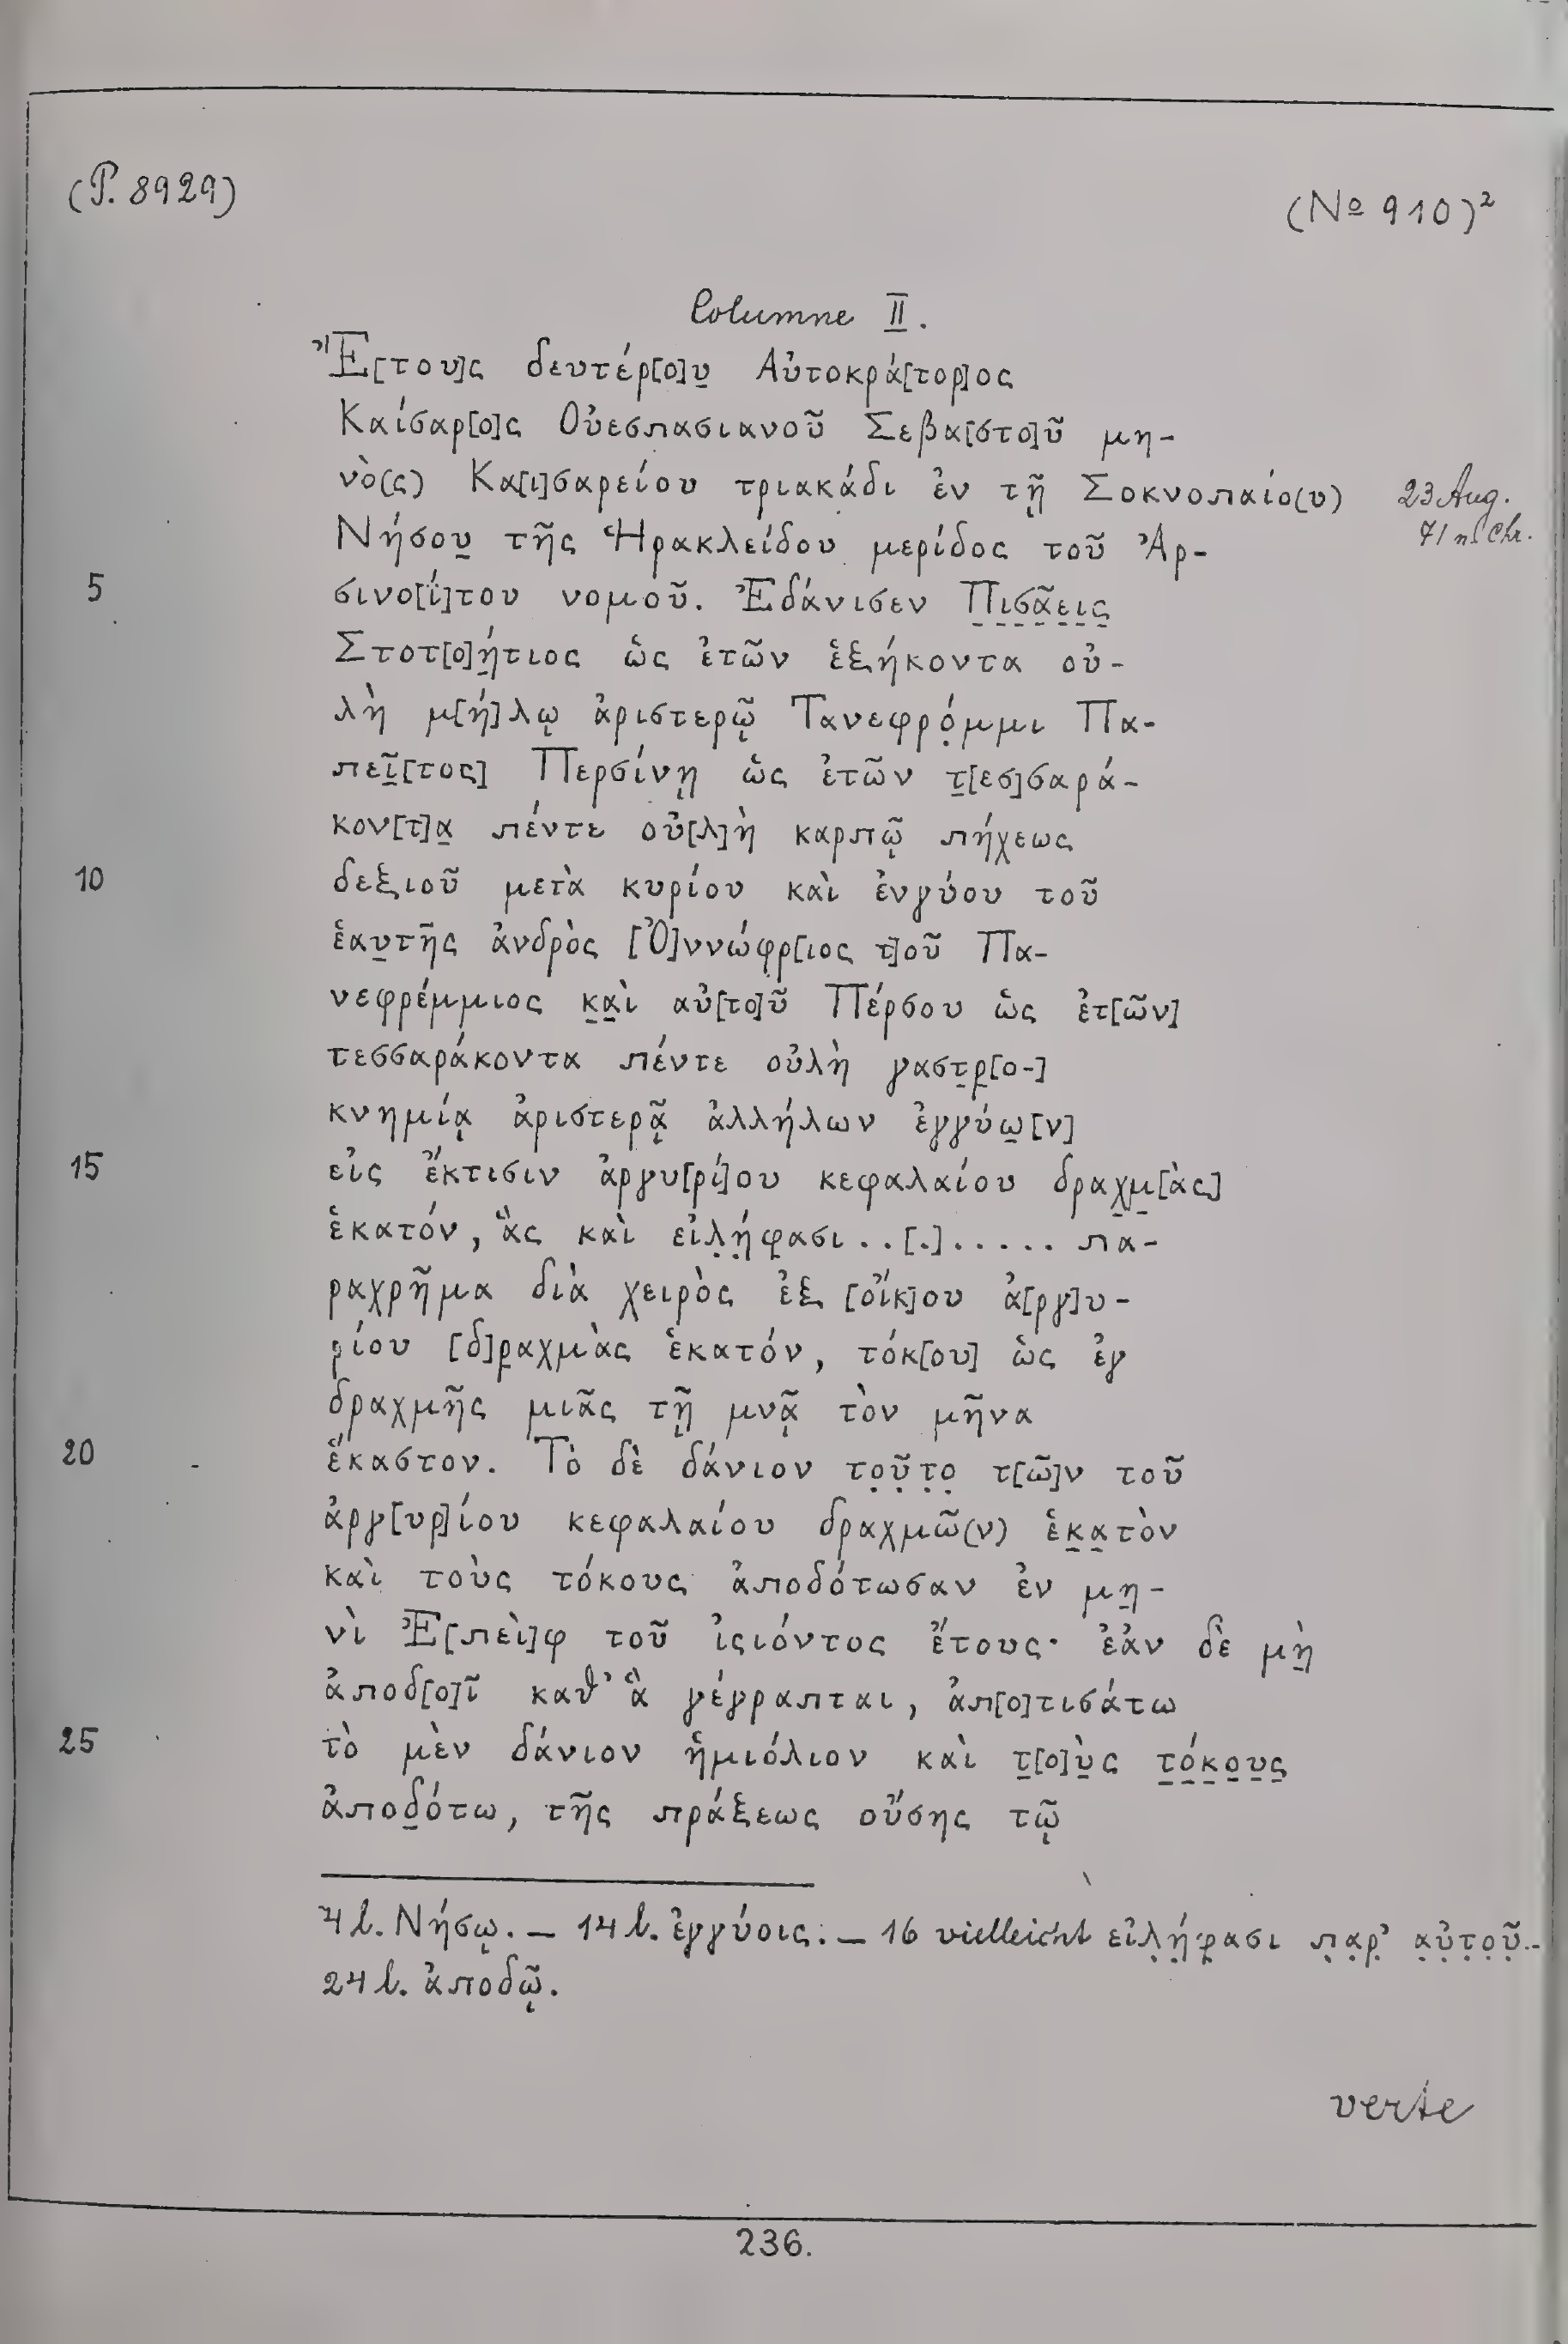 (P. 8929)
(No 910)²
Columne II.
Ἔ[του]ς δευτέρ[ο]υ̣ Αὐτοκρά[τορ]ος
Καίσαρ[ο]ς Οὐεσπασιανοῦ Σεβα[στο]ῦ μη-
νὸ(ς) Κα[ι]σαρείου τριακάδι ἐν τῇ Σοκνοπαίο(υ) 23 Aug.
71 n. Chr.
Νήσου̣ τῆς Ἡρακλείδου μερίδος τοῦ Ἀρ-
5 σινο[ΐ]του νομοῦ. Ἐδάνισεν Π̣ι̣σ̣ᾶ̣ε̣ι̣ς̣
Στοτ[ο]ή̣τιος ὡς ἐτῶν ἑξήκοντα οὐ-
λὴ μ[ή]λῳ ἀριστερῷ Τανεφρό̣μμι Πα-
πεῖ̣[τος] Περσίνῃ ὡς ἐτῶν τ̣[εσ]σαρά-
κον[τ]α̣ πέντε οὐ[λ]ὴ καρπῷ πήχεως
10 δεξιοῦ μετὰ κυρίου καὶ ἐνγύου τοῦ
ἑαυ̣τῆς ἀνδρὸς [Ὀ]ννώφρ[ιος τ]οῦ Πα-
νεφρέμμιος κ̣α̣ὶ αὐ[το]ῦ Πέρσου ὡς ἐτ[ῶν]
τεσσαράκοντα πέντε οὐλὴ γαστ̣ρ̣[ο-]
κνημίᾳ ἀριστερᾷ ἀλλήλων ἐγγύω̣[ν]
15 εἰς ἔκτισιν ἀργυ[ρί]ου κεφαλαίου δραχ̣μ̣[ὰς]
ἑκατόν, ἃς καὶ εἰλ̣ή̣φασι . . [.] . . . . . πα-
ραχρῆμα διὰ χειρὸς ἐξ [οἴκ]ου ἀ[ργ]υ-
ρίου [δ]ρ̣αχμὰς ἑκατόν, τόκ[ου] ὡς ἐγ
δραχμῆς μιᾶς τῇ μνᾷ τὸν μῆνα
20 ἕκαστον. Τὸ δὲ δάνιον τ̣ο̣ῦ̣τ̣ο̣ τ[ῶ]ν τοῦ
ἀργ[υρ]ίου κεφαλαίου δραχμῶ(ν) ἑκ̣α̣τὸν
καὶ τοὺς τόκους ἀποδότωσαν ἐν μη̣-
νὶ Ἐ[πεὶ]φ τοῦ ἰςιόντος ἔτους· ἐὰν δὲ μὴ̣
ἀποδ[ο]ῖ καθ' ἃ γέγραπται, ἀπ[ο]τισάτω
25 τὸ μὲν δάνιον ἡμιόλιον καὶ τ̣[ο]ὺ̣ς τ̣ό̣κ̣ο̣υ̣ς̣
ἀποδ̣ότω, τῆς πράξεως οὔσης τῷ
4 l. Νήσῳ. — 14 l. ἐγγύοις. — 16 vielleicht εἰλ̣ή̣φ̣ασι π̣α̣ρ̣' α̣ὐ̣τ̣ο̣ῦ̣. —
24 l. ἀποδῷ.
verte
236.